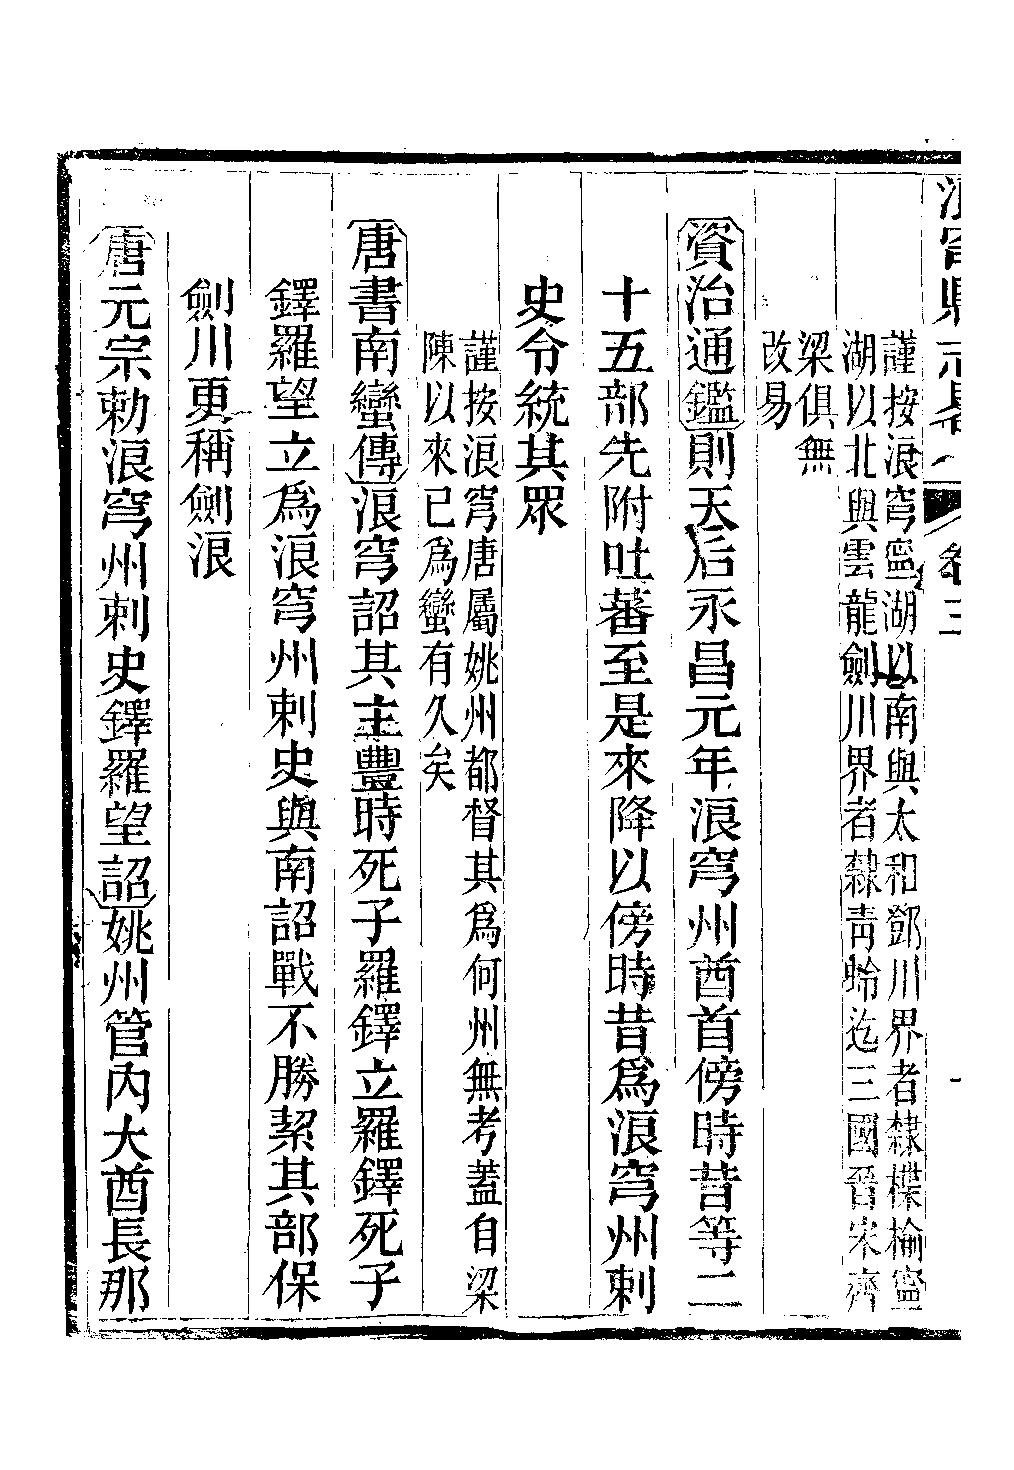 浪穹縣志畧 卷三
謹按浪穹寧湖以南與太和鄧川界者隸楪榆寧
湖以北與雲龍劍川界者隸青蛉迄三國晉宋齊
梁俱無
改易
資治通鑑則天后永昌元年浪穹州酋首傍時昔等二
十五部先附吐蕃至是來降以傍時昔爲浪穹州刺
史令統其眾
謹按浪穹唐屬姚州都督其爲何州無考蓋自梁
陳以來已爲蠻有久矣
唐書南蠻傳浪穹詔其主豐時死子羅鐸立羅鐸死子
鐸羅望立爲浪穹州刺史與南詔戰不勝挈其部保
劍川更稱劍浪
唐元宗勅浪穹州刺史鐸羅望詔姚州管內大酋長那